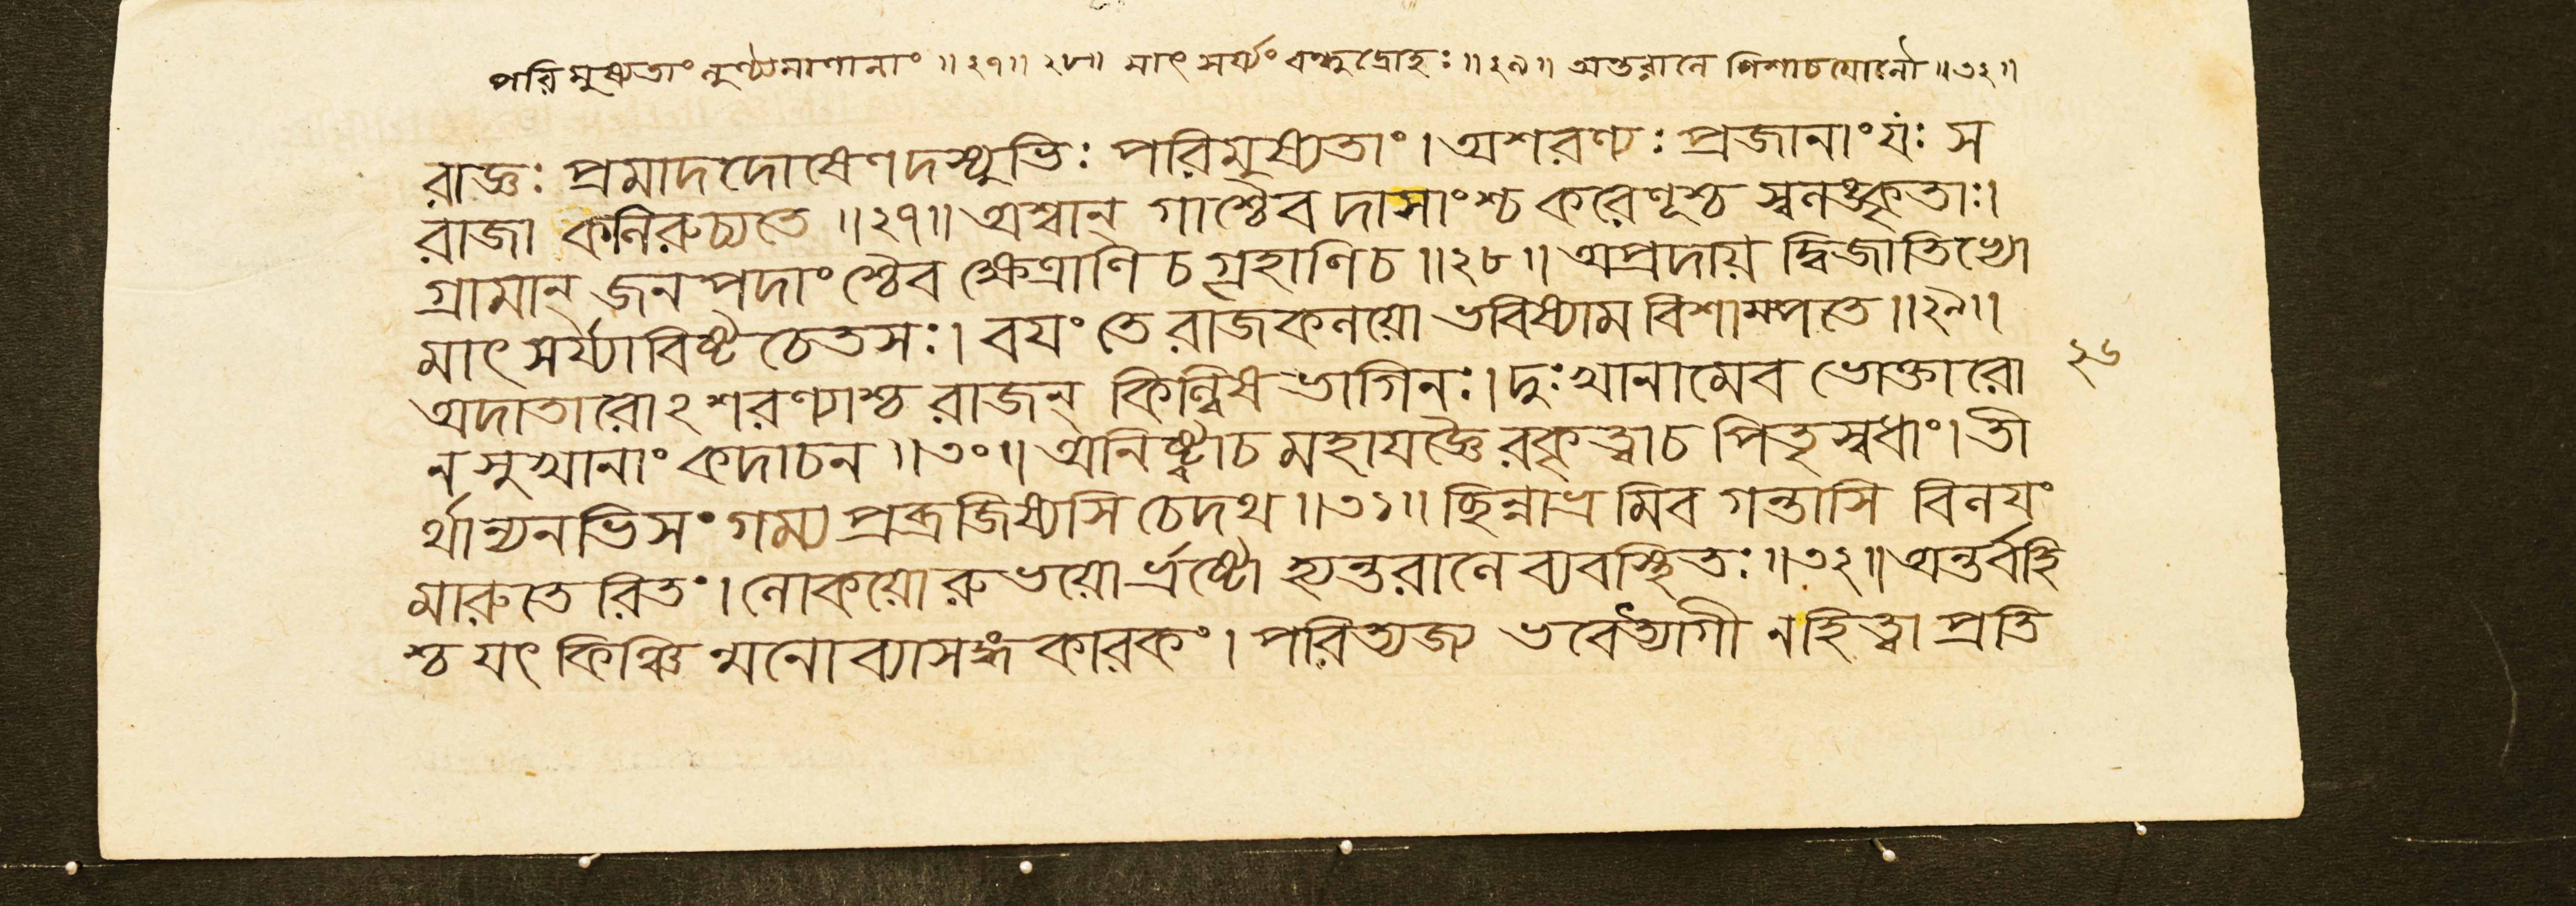 পরিমুষ্যতাং লুণ্ঠ্যমাণানাং ॥২৭॥ ২৮॥ মাৎসর্য্যং বন্ধুদ্রোহঃ ॥২৯॥ অন্তরালে পিশাচযোনৌ ॥৩২॥
রাজ্ঞঃ প্রমাদদোষেণ দস্যুভিঃ পরিমুষ্যতাং। অশরণ্যঃ প্রজানাং যঃ স
রাজা কলিরুচ্যতে ॥২৭॥ অশ্বান্ গাশ্চৈব দাসাংশ্চ করেণূশ্চ স্বলঙ্কৃতাঃ।
গ্রামান্ জনপদাংশ্চৈব ক্ষেত্রাণি চ গৃহাণি চ ॥২৮॥ অপ্রদায় দ্বিজাতিভ্যো
মাৎসর্য্যাবিষ্টচেতসঃ। বয়ং তে রাজকলয়ো ভবিষ্যাম বিশাম্পতে ॥২৯॥
অদাতারোঽশরণ্যাশ্চ রাজন্ কিল্বিষভাগিনঃ। দুঃখানামেব ভোক্তারো
২৬
ন সুখানাং কদাচন ॥৩০॥ অনিষ্ট্বা চ মহাযজ্ঞৈরকৃত্বা চ পিতৃস্বধাং। তী
র্থান্যনভিসংগম্য প্রব্রজিষ্যসি চেদথ ॥৩১॥ ছিন্নাভ্রমিব গন্তাসি বিলয়ং
মারুতেরিতং। লোকয়োরুভয়োর্ভ্রষ্টো হ্যন্তরালে ব্যবস্থিতঃ ॥৩২॥ অন্তর্বহি
শ্চ যৎ কিঞ্চিন্মনোব্যাসঙ্গকারকং। পরিত্যজ্য ভবেত্ত্যাগী ন হিত্বা প্রতি